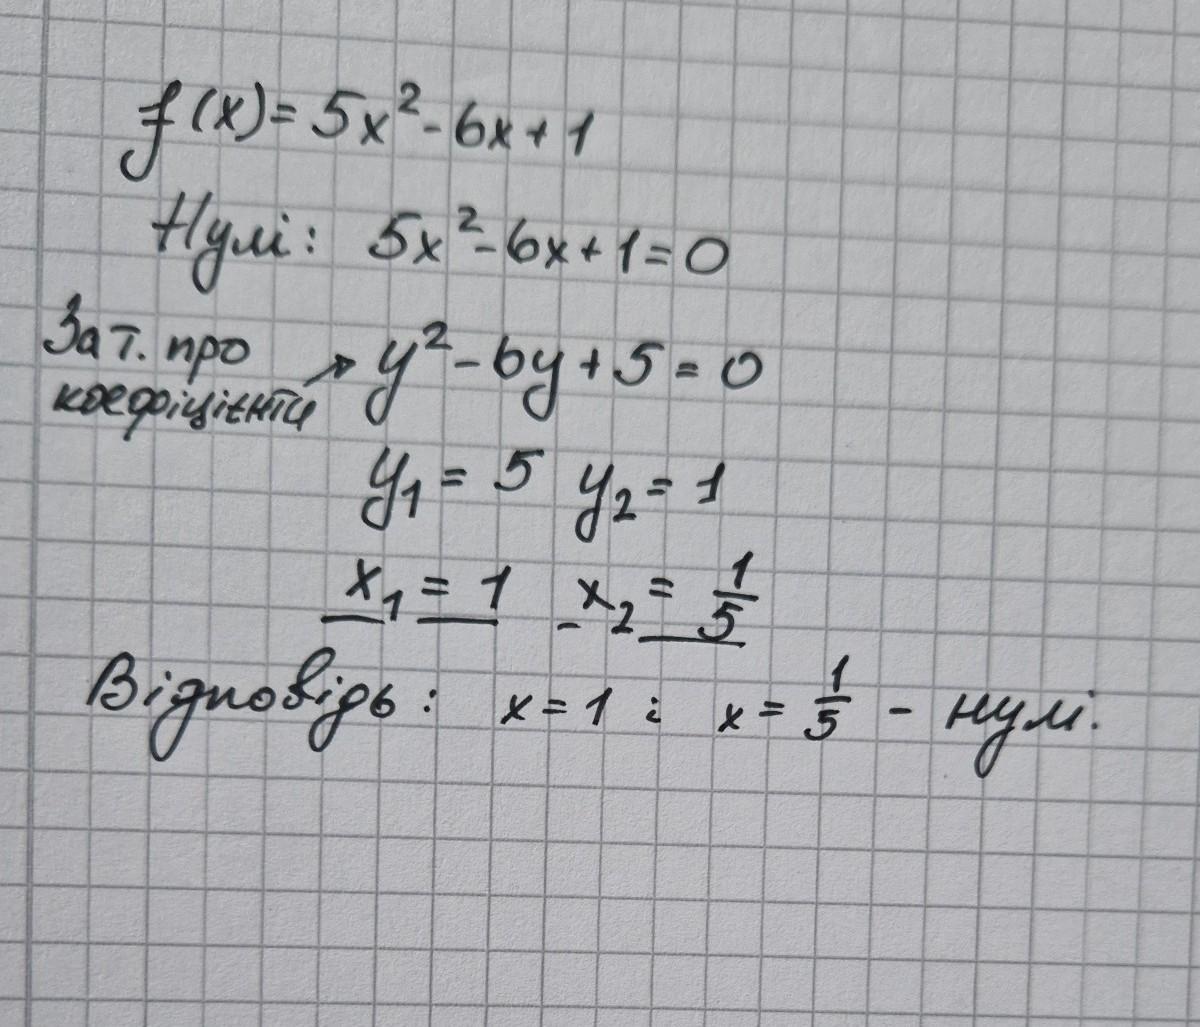 f(x)= 5x²-6x+1
Нулі: 5x²-6x+1=0
За т. про
коефіцієнти → y²-6y+5=0
y₁=5 y₂=1
x₁=1 x₂=1/5
Відповідь: x=1 і x=1/5 - нулі.